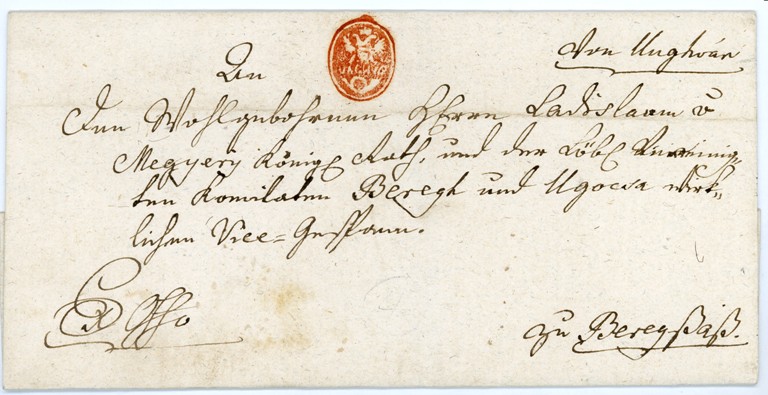 Von Unghvár
An
Den Wohlgebohrnen Herrn Ladislaum v
Megyery Königl Rath, und der Löbl Vereinig=
ten Komitaten Beregh und Ugocsa wirk=
lichen Vice=Gespann.
Ex Offo
zu Beregßaß.